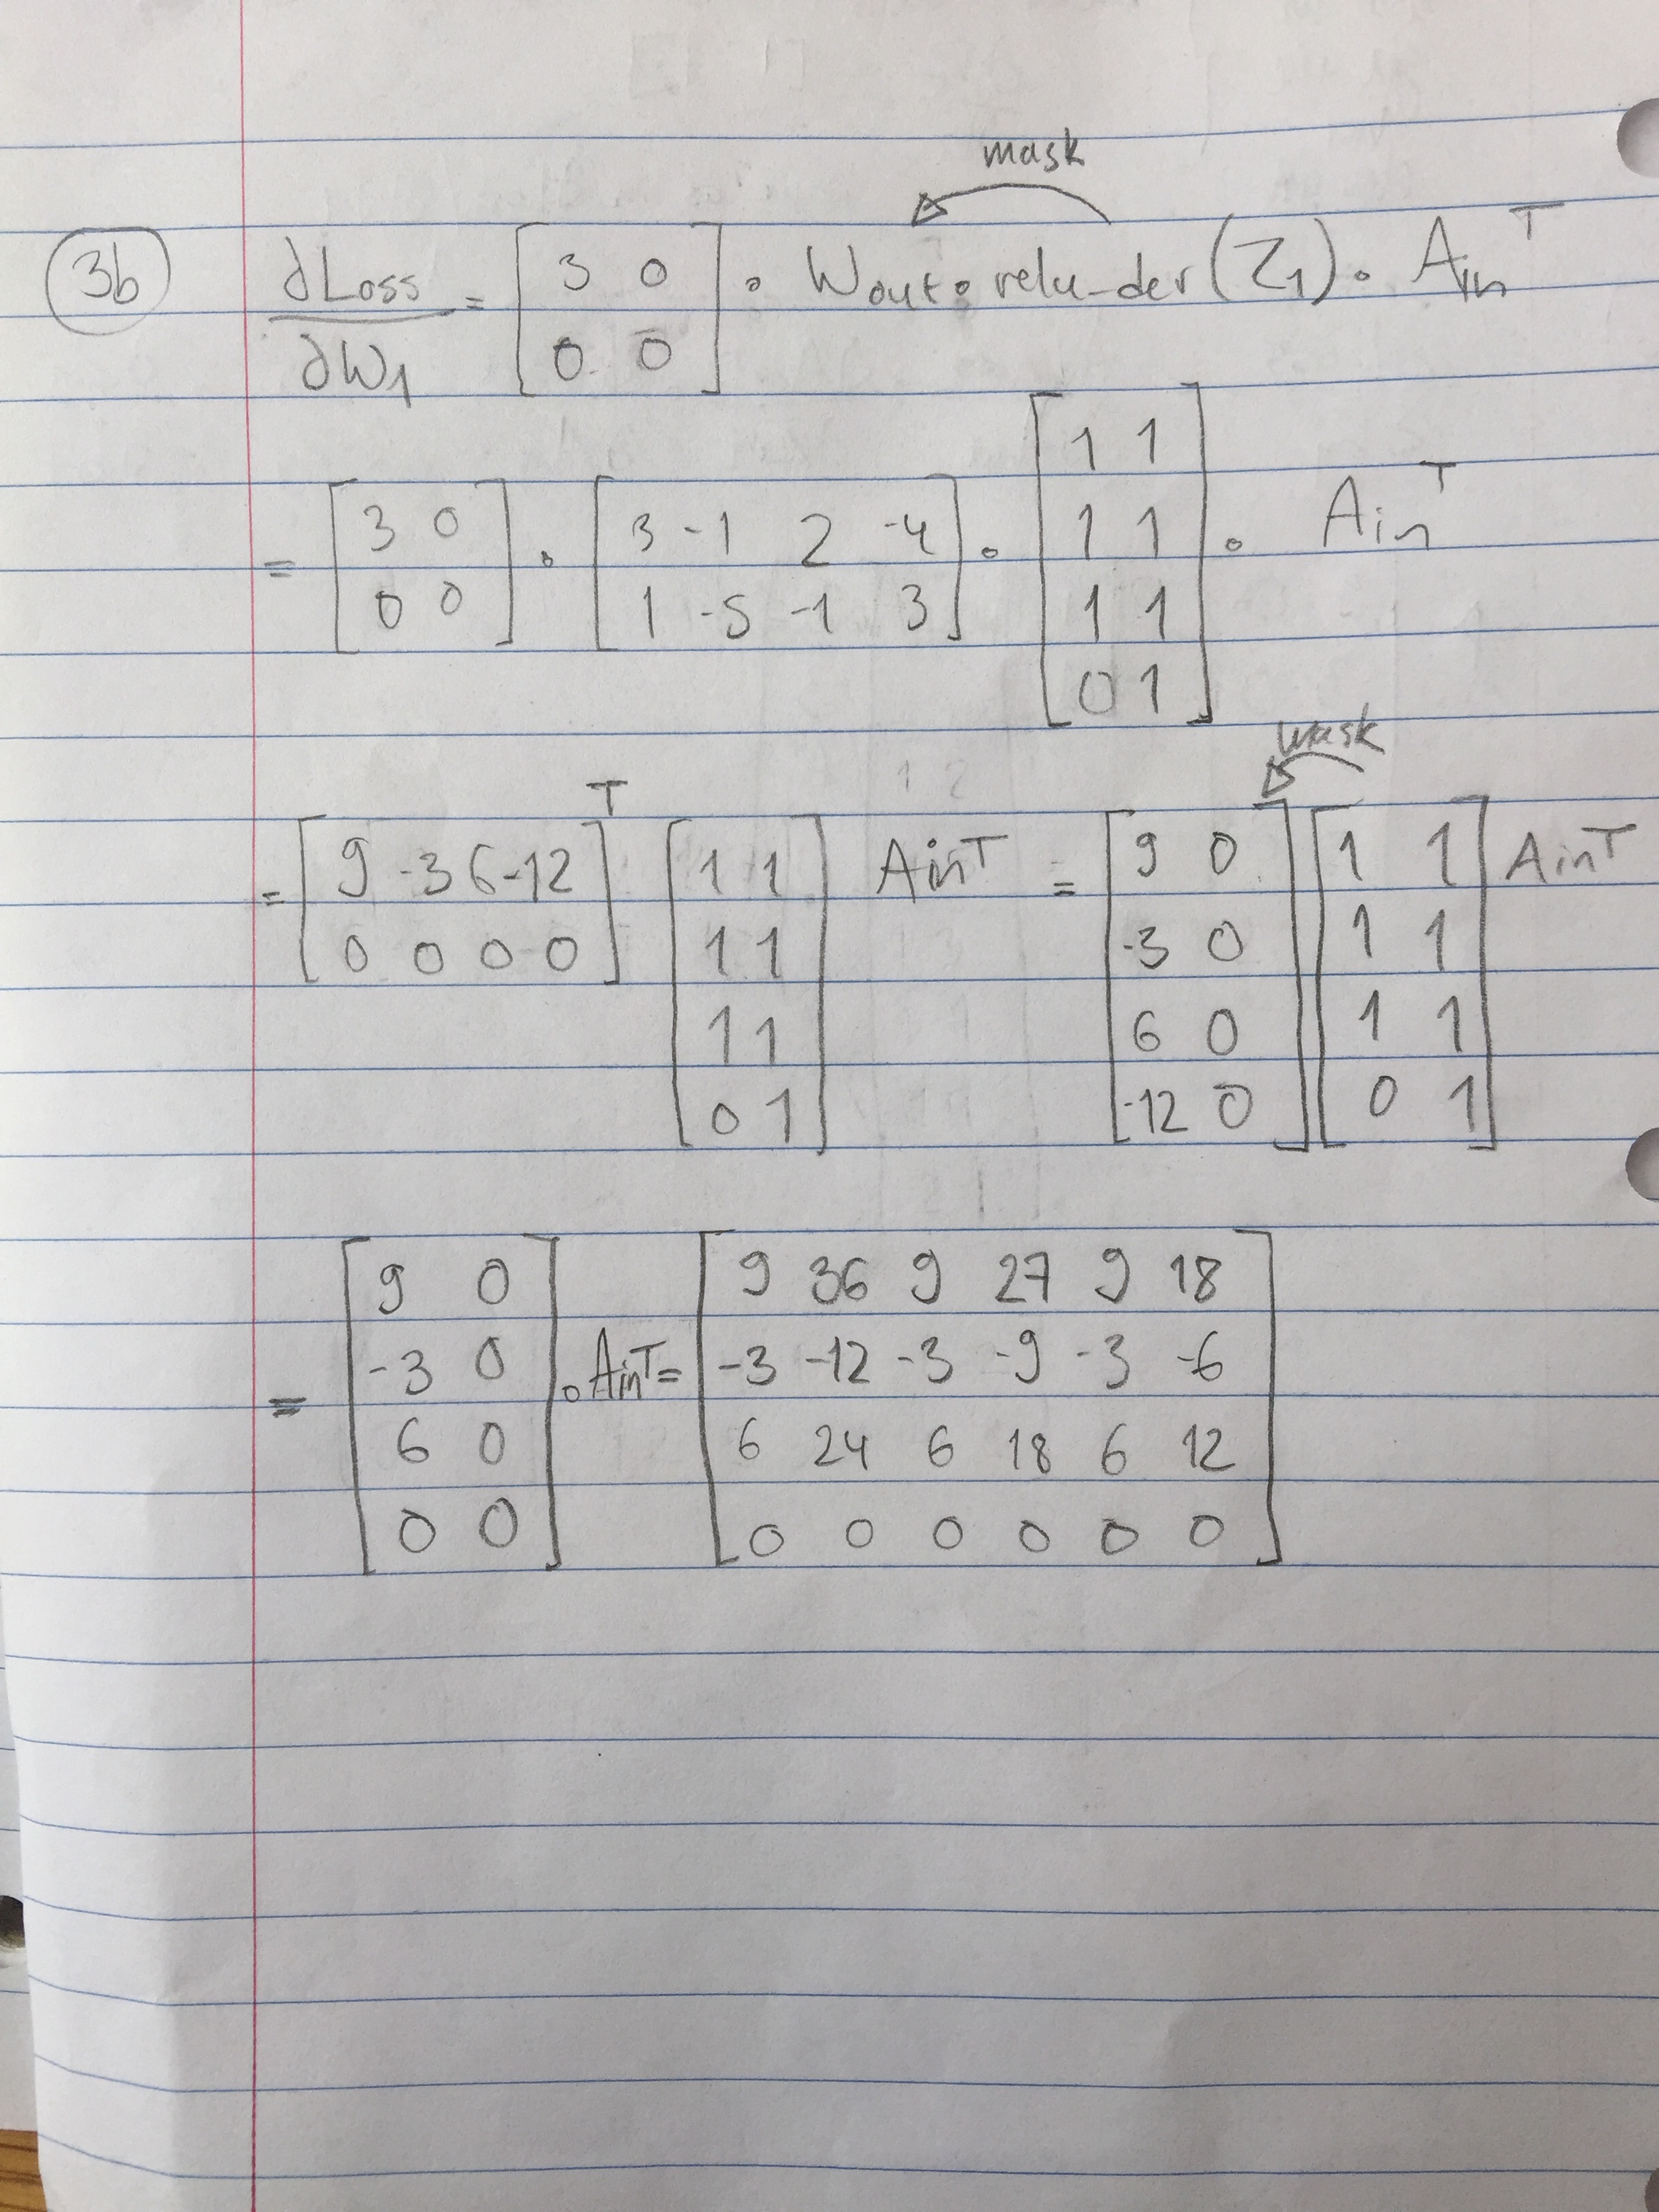 mask
3b ∂Loss/∂W1 = [3 0; 0 0] · Wout · relu-der(Z1) · Ain^T
= [3 0; 0 0] · [3 -1 2 -4; 1 -5 -1 3] · [1 1; 1 1; 1 1; 0 1] · Ain^T
mask
= [9 -3 6 -12; 0 0 0 0]^T [1 1; 1 1; 1 1; 0 1] Ain^T = [9 0; -3 0; 6 0; -12 0] [1 1; 1 1; 1 1; 0 1] Ain^T
= [9 0; -3 0; 6 0; 0 0] · Ain^T = [9 36 9 27 9 18; -3 -12 -3 -9 -3 -6; 6 24 6 18 6 12; 0 0 0 0 0 0]